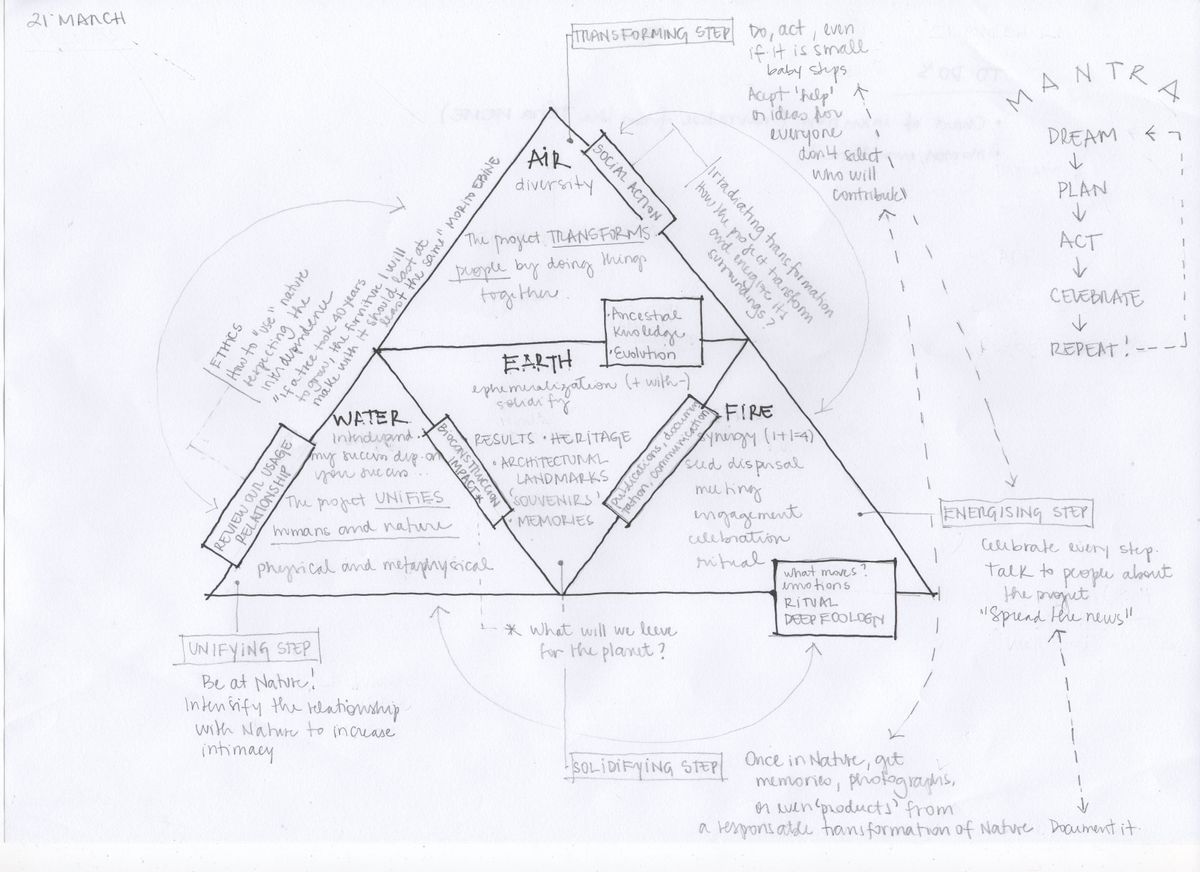 21 MARCH
TRANSFORMING STEP
Do, act, even
if it is small
baby steps
Acept 'help'
or ideas for
everyone
don't select
who will
contribute
MANTRA
DREAM
PLAN
ACT
CELEBRATE
REPEAT!
AIR
diversity
The project TRANSFORMS
people by doing things
together.
SOCIAL ACTION
Irradiating transformation
How the project transform
and energize its
surroundings?
ETHICS
How to "use" nature
respecting the
intrdependence
"If a tree took 40 years
to grow, the furniture I will
make with it should last at
least the same" MORITO EBINE
• Ancestral
Knoledge
• Evolution
EARTH
ephemeralization (+ with -)
solidify
• RESULTS • HERITAGE
• ARCHITECTURAL
LANDMARKS
'SOUVENIRS'
• MEMORIES
WATER
my success dep. on
your success...
The project UNIFIES
humans and nature
physical and metaphysical
REVIEW OUR USAGE
RELATIONSHIP
BIOCONSTRUCTION
IMPACT*
publications, documen
tation, communication
FIRE
synergy (1+1=4)
seed dispersal
meeting
engagement
celebration
ritual
what moves?
emotions
RITUAL
DEEP ECOLOGY
ENERGISING STEP
Celebrate every step.
Talk to people about
the project
"Spread the news"
UNIFYING STEP
Be at Nature!
Intensify the relationship
with Nature to increase
intimacy
* What will we leeve
for the planet?
SOLIDIFYING STEP
Once in Nature, get
memories, photographs,
or even 'products' from
a responsable transformation of Nature. Document it.